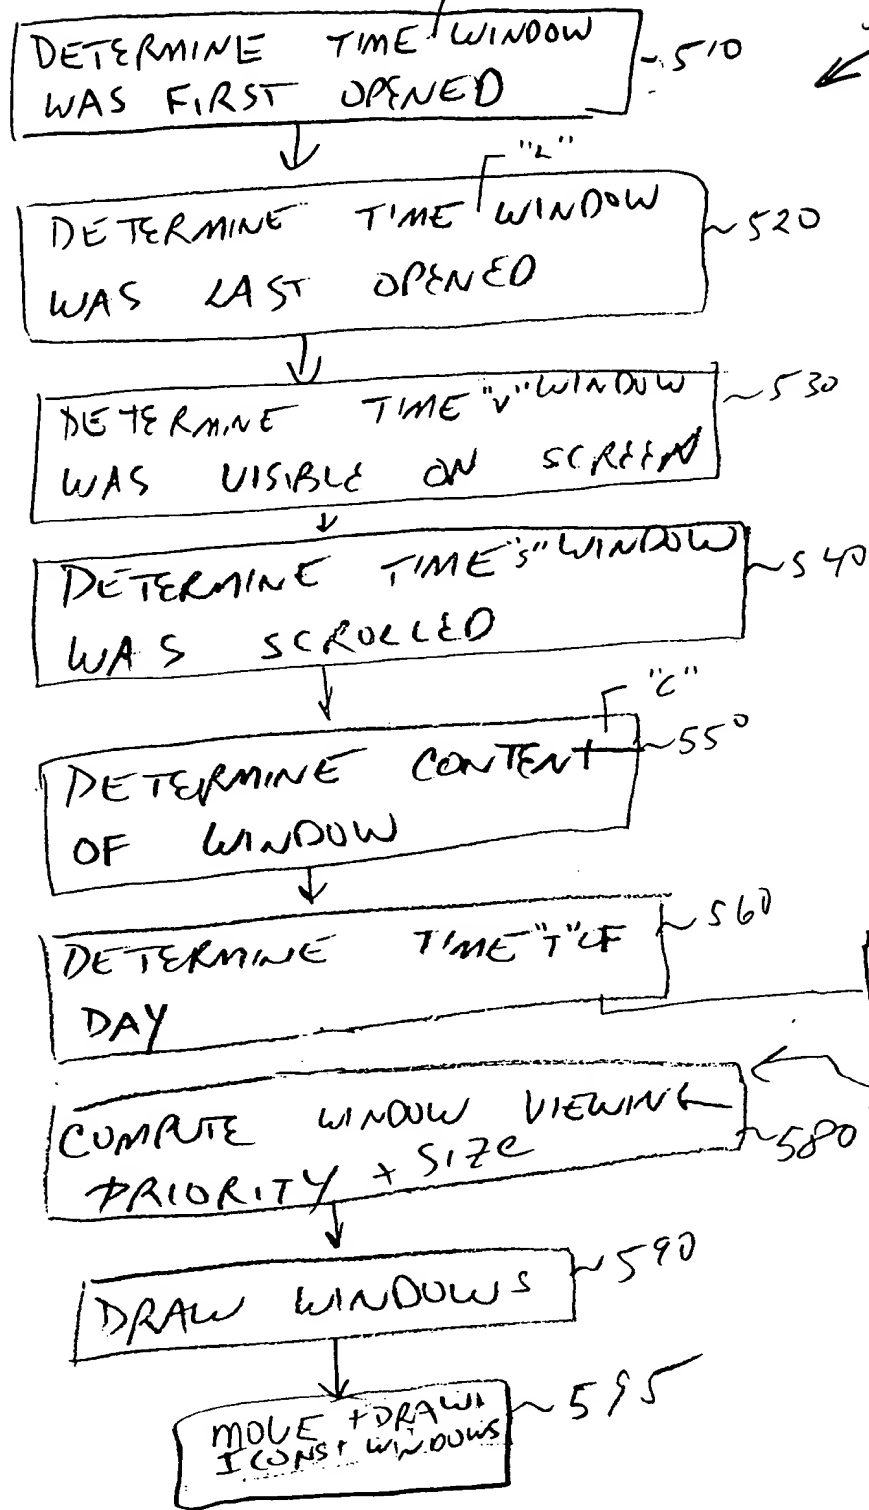 DETERMINE TIME WINDOW
WAS FIRST OPENED
510
"L"
DETERMINE TIME WINDOW
WAS LAST OPENED
520
DETERMINE TIME "V" WINDOW
WAS VISIBLE ON SCREEN
530
DETERMINE TIME "S" WINDOW
WAS SCROLLED
540
"C"
DETERMINE CONTENT
OF WINDOW
550
DETERMINE TIME "T" OF
DAY
560
COMPUTE WINDOW VIEWING
PRIORITY + SIZE
580
DRAW WINDOWS
590
MOVE + DRAW
ICONS + WINDOWS
595